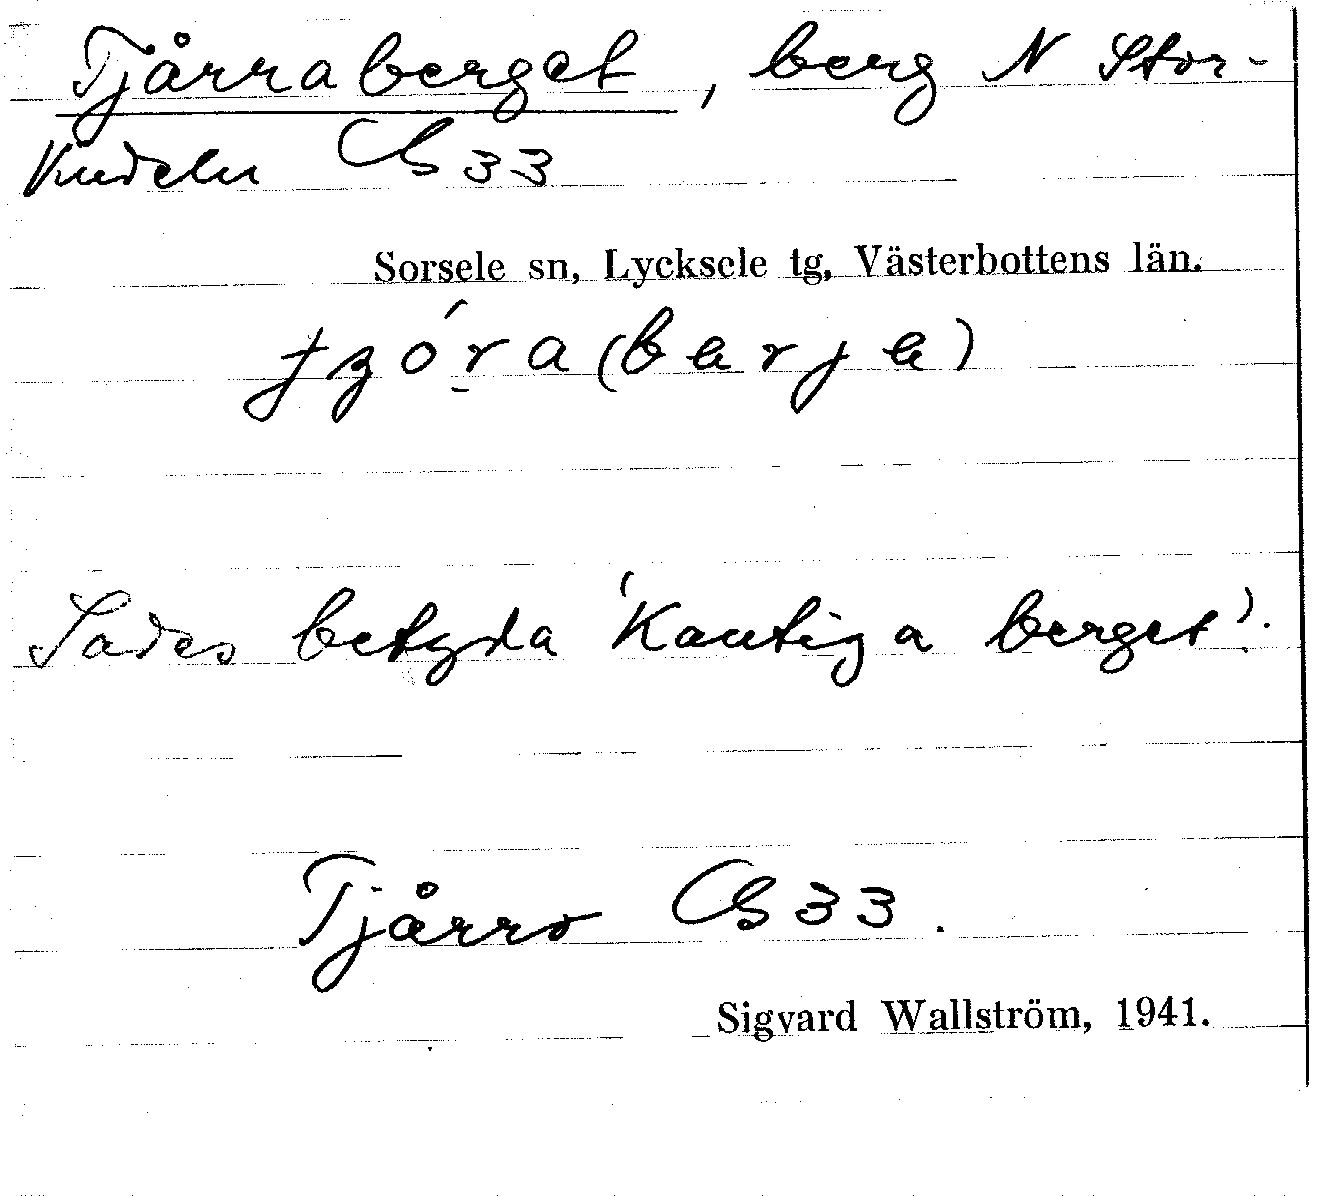 Tjårraberget, berg N Stor-
Vindeln Cb 33
Sorsele sn, Lycksele tg, Västerbottens län.
(barja)
Sades betyda 'Kantiga berget'.
Tjårro Cb 33.
Sigvard Wallström, 1941.